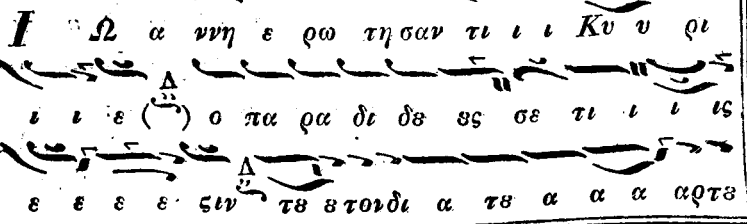 Ι Ω α ννη ε ρω τη σαν τι ι ι Κυ υ ρι
ι ι ε ( ) ο πα ρα δι δȣ ȣς σε τι ι ι ις
ε ε ε ε ςιν τȣ ȣ τον δι α τȣ α α α αρτȣ